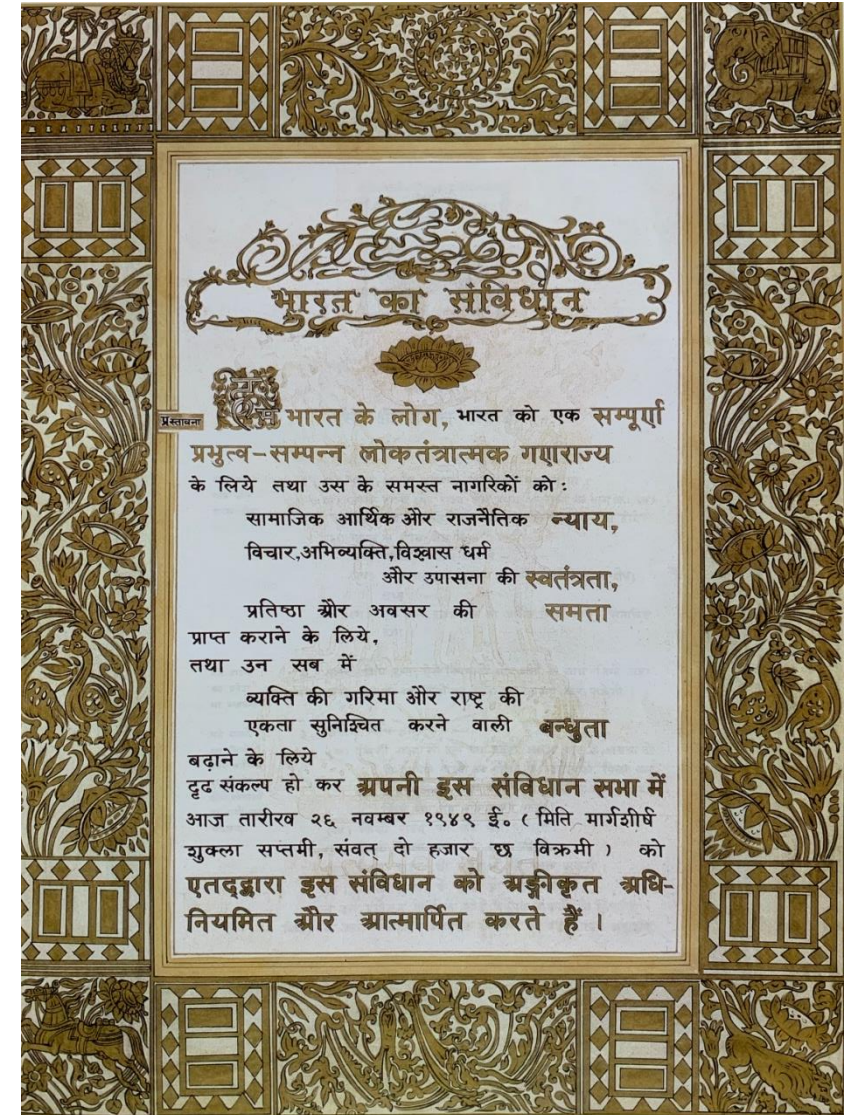 भारत का संविधान
प्रस्तावना
हम भारत के लोग, भारत को एक सम्पूर्ण
प्रभुत्व-सम्पन्न लोकतंत्रात्मक गणराज्य
के लिये तथा उस के समस्त नागरिकों को:
सामाजिक आर्थिक और राजनैतिक न्याय,
विचार,अभिव्यक्ति,विश्वास धर्म
और उपासना की स्वतंत्रता,
प्रतिष्ठा और अवसर की समता
प्राप्त कराने के लिये,
तथा उन सब में
व्यक्ति की गरिमा और राष्ट्र की
एकता सुनिश्चित करने वाली बन्धुता
बढ़ाने के लिये
दृढ संकल्प हो कर अपनी इस संविधान सभा में
आज तारीख २६ नवम्बर १९४९ ई० (मिति मार्गशीर्ष
शुक्ला सप्तमी, संवत् दो हजार छ विक्रमी) को
एतद्द्वारा इस संविधान को अङ्गीकृत अधि-
नियमित और आत्मार्पित करते हैं ।